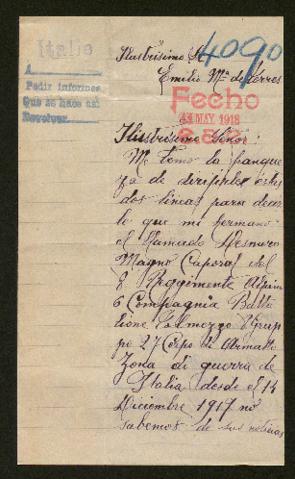 Italia
A
Pedir informes
Que se hace así
Devolver
4090
Ilustrísimo Sr
Emilio Mª de Torres
Fecho
MAY. 1918
Ilustrísimo Señor:
Me tomo la franque
za de dirijirle estas
dos lineas para decir
le que mi hermano
el llamado
Magno Caporal del
8 Reggimento Alpini
6 Compagnia Batta
lione Tolmezzo Grup
po 27 Corpo di Armatta
Zona di guerra de
Italia desde el 14
Diciembre 1917 no
sabemos de sus noticias